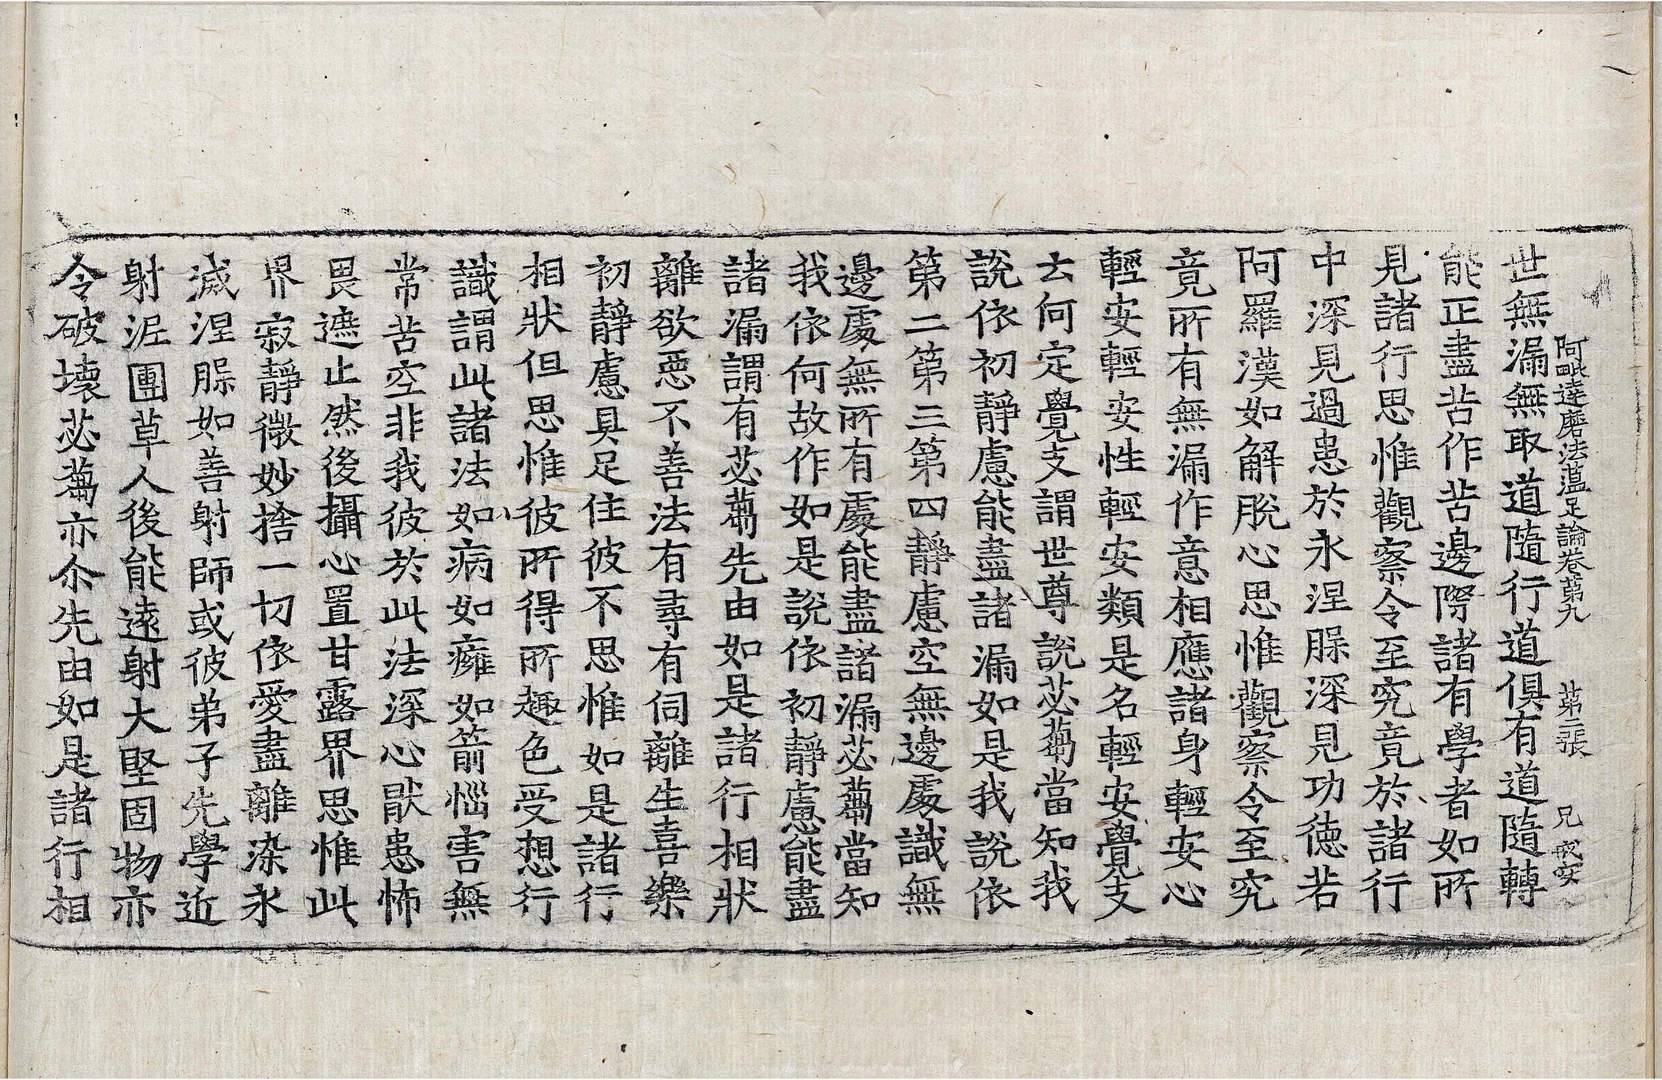 阿毗達磨法蘊足論卷第九 第二張 兄
世無漏無取道隨行道俱有道隨轉
能正盡苦作苦邊際諸有學者如所
見諸行思惟觀察令至究竟於諸行
中深見過患於永涅脲深見功德若
阿羅漢如解脫心思惟觀察令至究
竟所有無漏作意相應諸身輕安心
輕安輕安性輕安類是名輕安覺支
云何定覺支謂世尊說苾蒭當知我
說依初靜慮能盡諸漏如是我說依
第二第三第四靜慮空無邊處識無
邊處無所有處能盡諸漏苾蒭當知
我依何故作如是說依初靜慮能盡
諸漏謂有苾蒭先由如是諸行相狀
離欲惡不善法有尋有伺離生喜樂
初靜慮具足住彼不思惟如是諸行
相狀但思惟彼所得所趣色受想行
識謂此諸法如病如癰如箭惱害無
常苦空非我彼於此法深心猒患怖
畏遮止然後攝心置甘露界思惟此
界寂靜微妙捨一切依愛盡離染永
滅涅脲如善射師或彼弟子先學近
射泥團草人後能遠射大堅固物亦
令破壞苾蒭亦尒先由如是諸行相